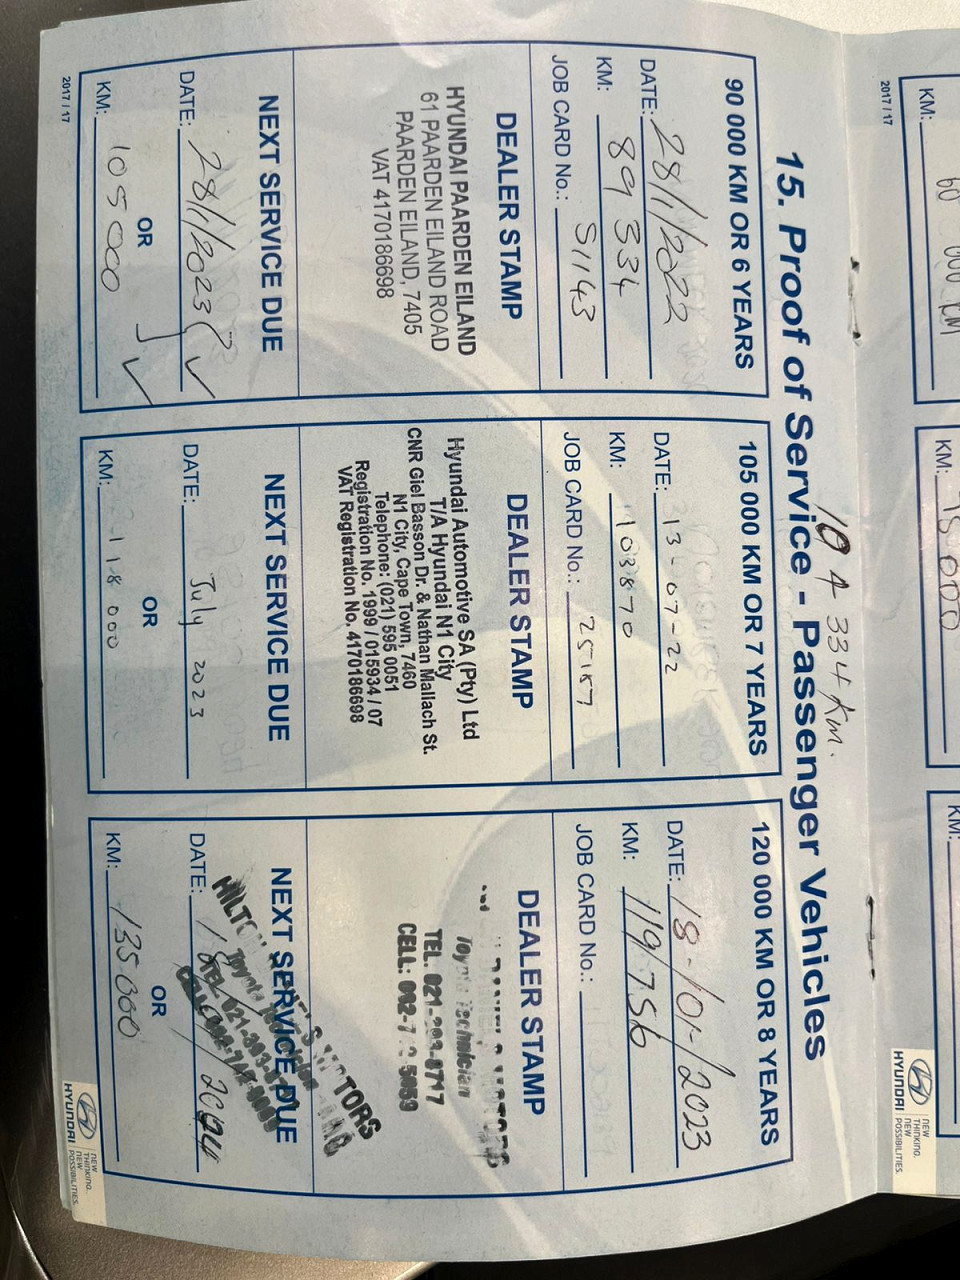 15. Proof of Service - Passenger Vehicles
104 334 Km.
90 000 KM OR 6 YEARS
DATE: 28/1/2022
KM: 89 334
JOB CARD No.: S1143
DEALER STAMP
HYUNDAI PAARDEN EILAND
61 PAARDEN EILAND ROAD
PAARDEN EILAND, 7405
VAT 4170186698
NEXT SERVICE DUE
DATE: 28/1/2023
OR
KM: 105 000
2017 / 17
105 000 KM OR 7 YEARS
DATE: 13-07-22
KM: 103870
JOB CARD No.: 25157
DEALER STAMP
Hyundai Automotive SA (Pty) Ltd
T/A Hyundai N1 City
CNR Giel Basson Dr. & Nathan Mallach St.
N1 City, Cape Town, 7460
Telephone: (021) 595 0051
Registration No. 1999 / 015934 / 07
VAT Registration No. 4170186698
NEXT SERVICE DUE
DATE: July 2023
OR
KM: 118 000
120 000 KM OR 8 YEARS
DATE: 18-10-/2023
KM: 119 756
JOB CARD No.:
DEALER STAMP
MOTORS
Toyota Technician
TEL: 021-393-8717
CELL:
NEXT SERVICE DUE
DATE: 18/
OR
KM: 135 000
HYUNDAI
NEW
THINKING.
NEW
POSSIBILITIES.
KM: 60 000 KM
2017 / 17
KM: 75 000
KM:
HYUNDAI
NEW
THINKING.
NEW
POSSIBILITIES.